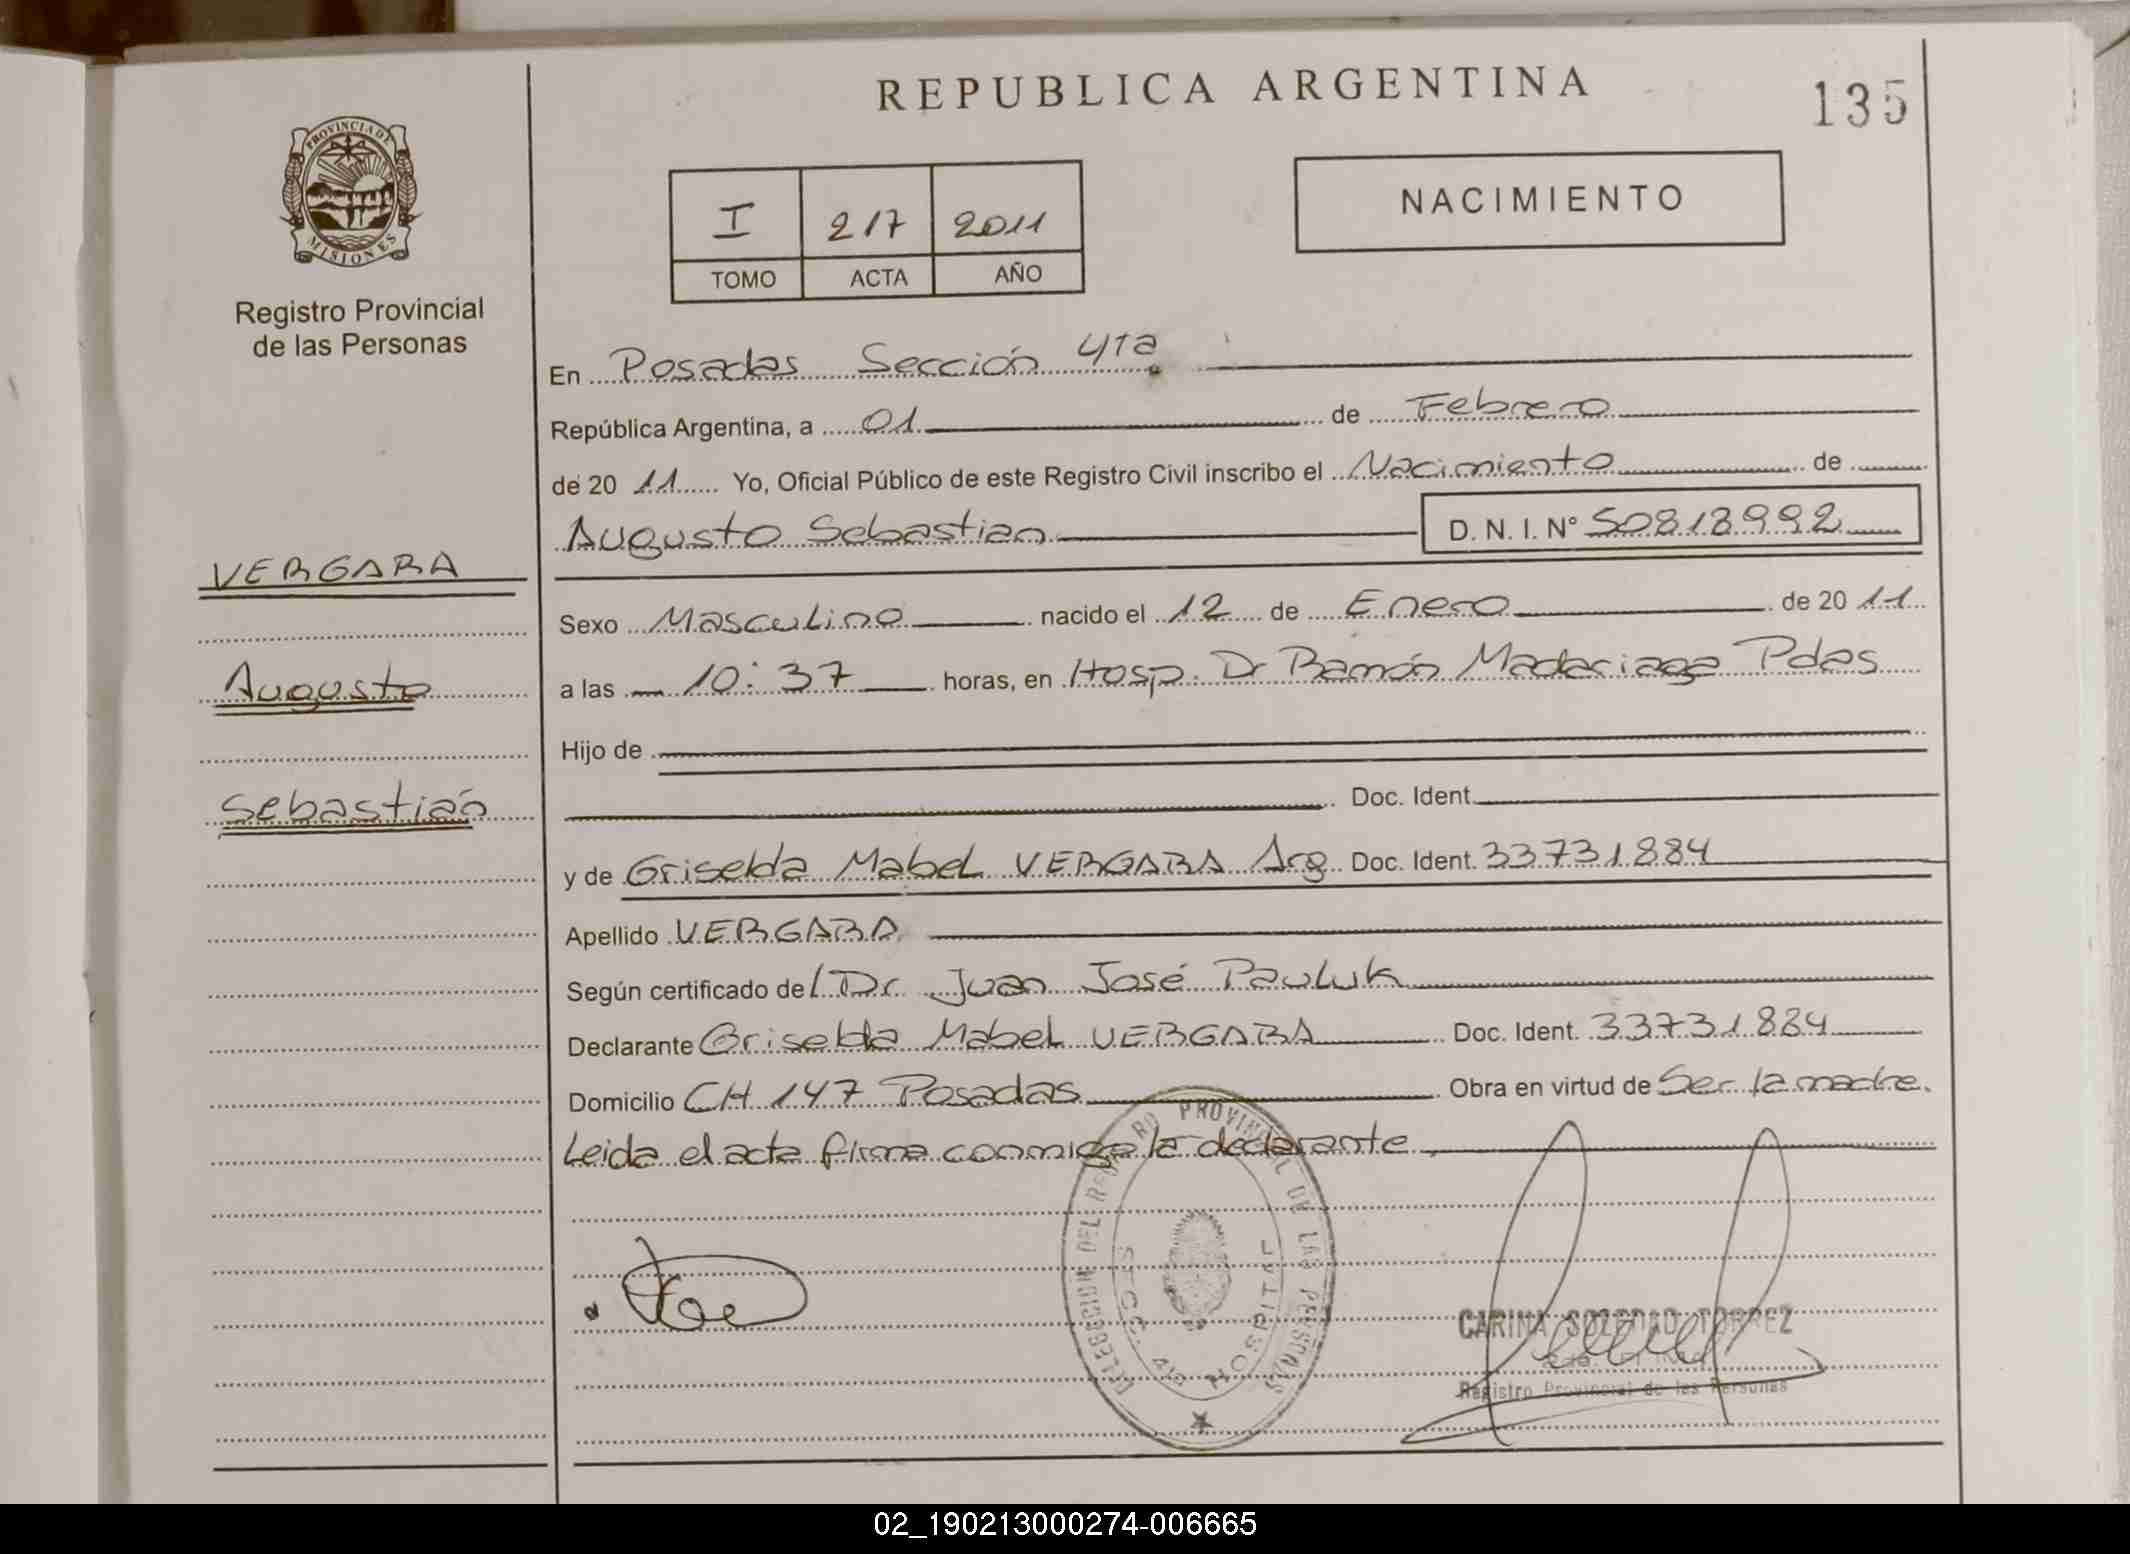 REPUBLICA ARGENTINA
135
PROVINCIA DE
MISIONES
Registro Provincial
de las Personas
I 217 2011
TOMO ACTA AÑO
NACIMIENTO
En Posadas Sección 4ta
República Argentina, a 01 de Febrero
de 20 11 Yo, Oficial Público de este Registro Civil inscribo el Nacimiento de
Augusto Sebastian D. N. I. N° 50818992
VERGARA
Augusto
Sebastián
Sexo Masculino nacido el 12 de Enero de 20 11
a las 10:37 horas, en Hosp. Dr Ramón Madariaga Pdas
Hijo de
Doc. Ident.
y de Griselda Mabel VERGARA Arg Doc. Ident. 33731884
Apellido VERGARA
Según certificado del Dr. Juan José Pauluk
Declarante Griselda Mabel VERGARA Doc. Ident. 33731884
Domicilio CH 147 Posadas Obra en virtud de Ser la madre.
Leida el acta firma conmigo la declarante.
DELEGACION DEL REGISTRO PROVINCIAL DE LAS PERSONAS
SECC. 4ta HOSPITAL
CARINA SOLEDAD TORREZ
Registro Provincial de las Personas
02_190213000274-006665